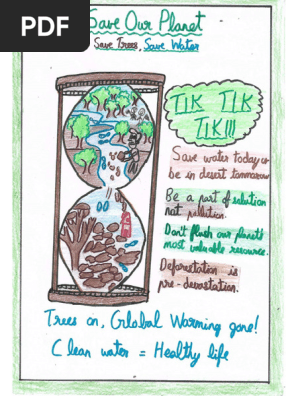 PDF
Save Our Planet
Save Trees, Save Water
TIK TIK
TIK!!!
Save water today or
be in desert tommorow
Be a part of solution
not pollution.
Don't flush our planets
most valuable resource.
Deforestation is
pre-devastation.
Trees on, Global Warming gone!
Clean water = Healthy life